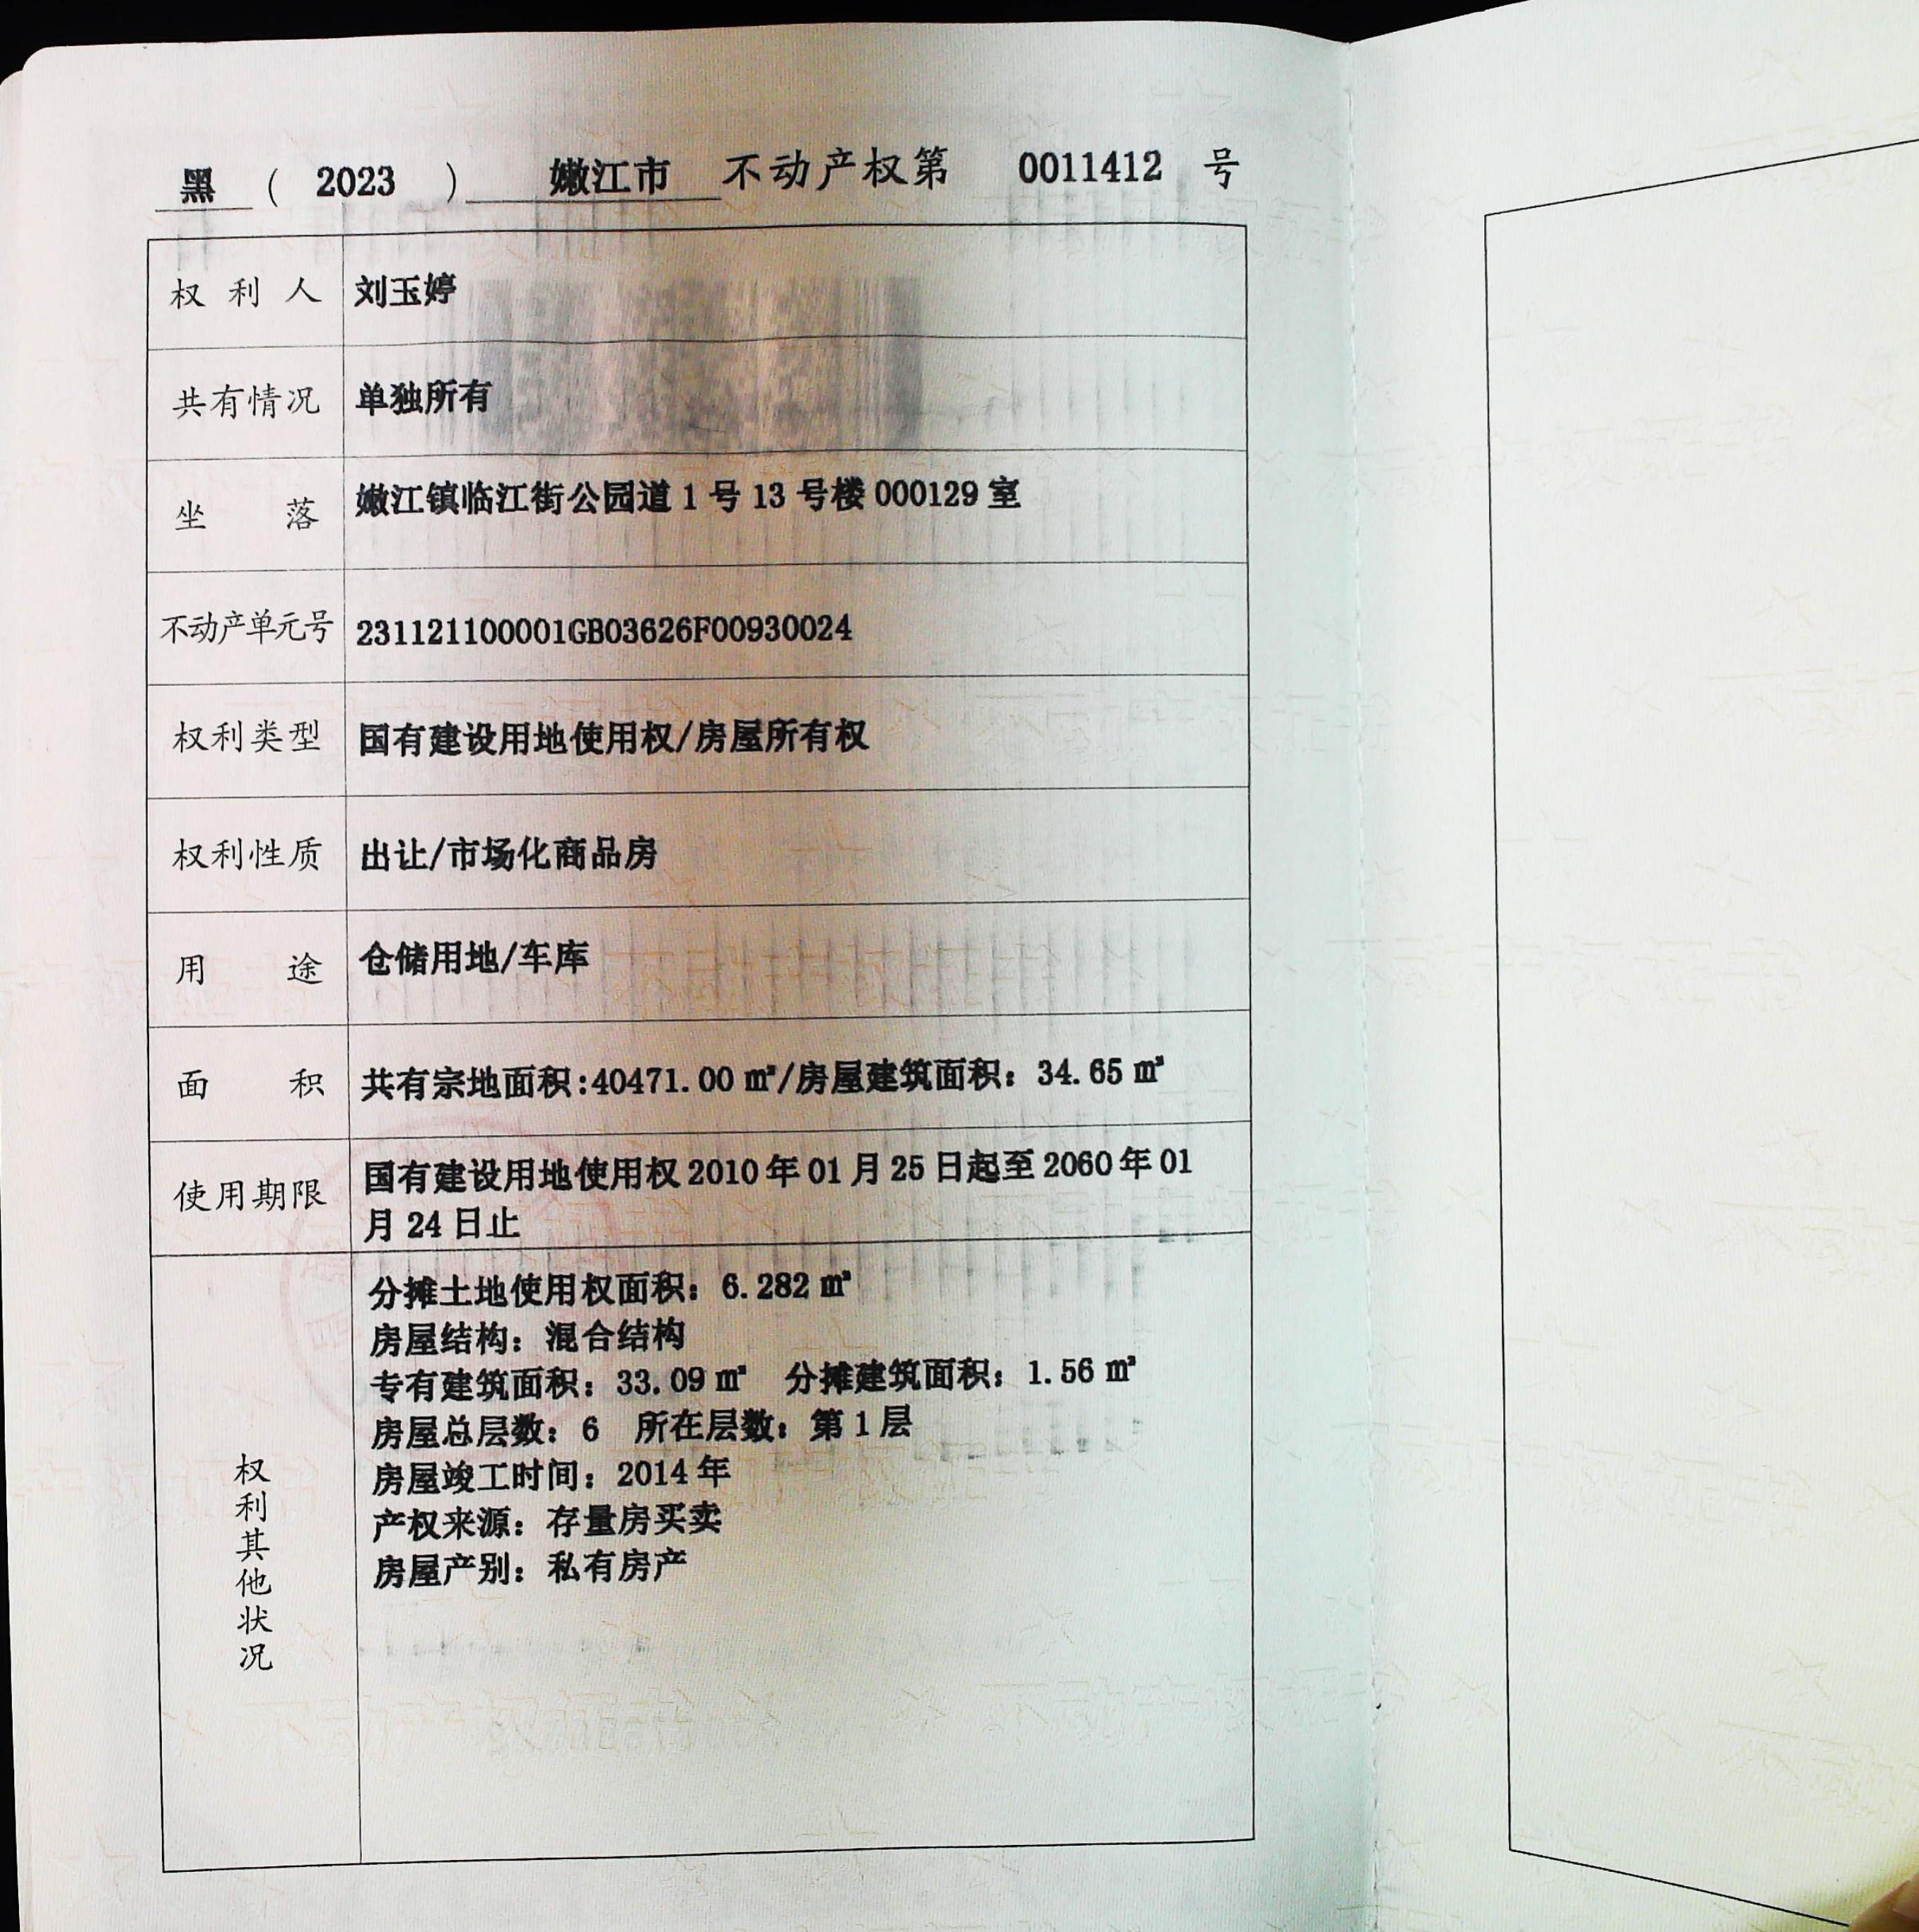 黑 ( 2023 ) 嫩江市 不动产权第 0011412 号
权利人 刘玉婷
共有情况 单独所有
坐落 嫩江镇临江街公园道1号13号楼000129室
不动产单元号 231121100001GB03626F00930024
权利类型 国有建设用地使用权/房屋所有权
权利性质 出让/市场化商品房
用途 仓储用地/车库
面积 共有宗地面积:40471.00㎡/房屋建筑面积：34.65㎡
使用期限 国有建设用地使用权2010年01月25日起至2060年01
月24日止
权利其他状况
分摊土地使用权面积：6.282㎡
房屋结构：混合结构
专有建筑面积：33.09㎡ 分摊建筑面积：1.56㎡
房屋总层数：6 所在层数：第1层
房屋竣工时间：2014年
产权来源：存量房买卖
房屋产别：私有房产